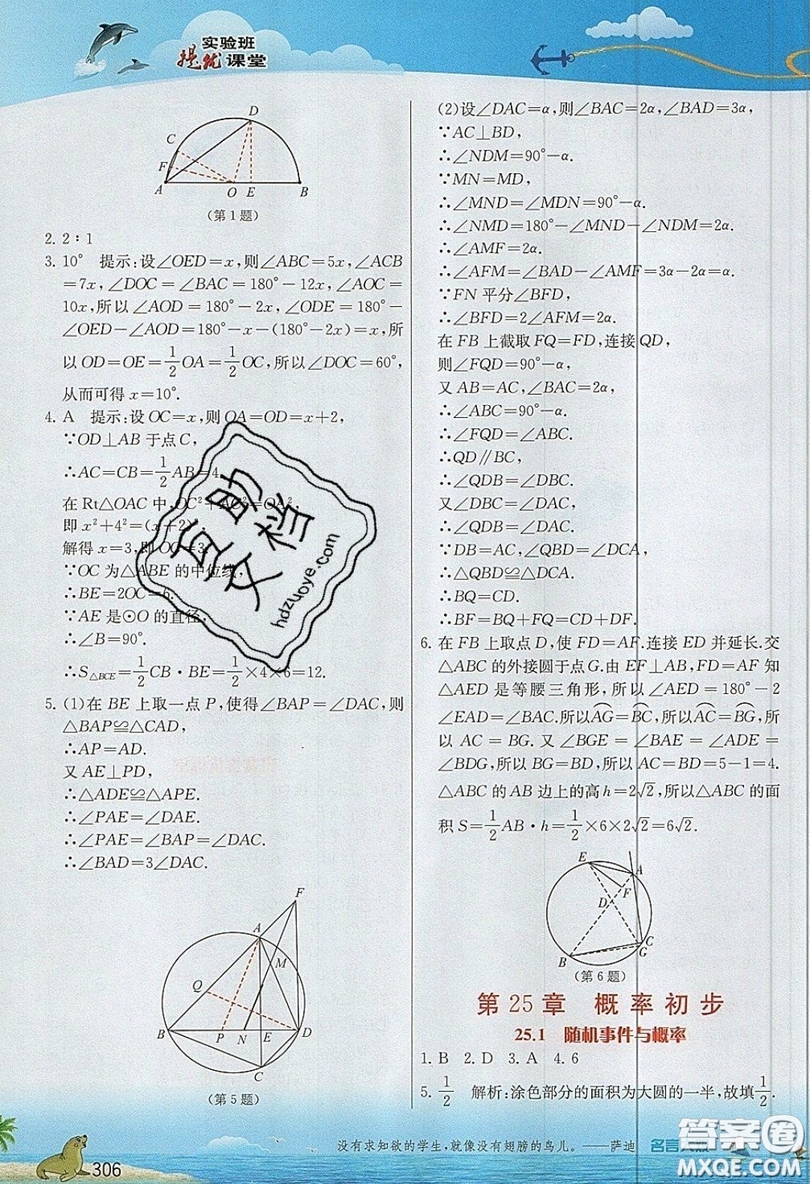 实验班
提优课堂
C
D
F
A
O
E
B
(第1题)
2. 2∶1
3. 10° 提示:设∠OED=x,则∠ABC=5x,∠ACB
=7x,∠DOC=∠BAC=180°-12x,∠AOC=
10x,所以∠AOD=180°-2x,∠ODE=180°-
∠OED-∠AOD=180°-x-(180°-2x)=x,所
以OD=OE=1/2OA=1/2OC,所以∠DOC=60°,
从而可得x=10°.
4. A 提示:设OC=x,则OA=OD=x+2,
∵OD⊥AB于点C,
∴AC=CB=1/2AB=4.
在Rt△OAC中,OC²+AC²=OA².
即x²+4²=(x+2)².
解得x=3,即OC=3.
∵OC为△ABE的中位线,
∴BE=2OC=6.
∵AE是⊙O的直径,
∴∠B=90°.
∴S△BCE=1/2CB·BE=1/2×4×6=12.
5. (1)在BE上取一点P,使得∠BAP=∠DAC,则
△BAP≌△CAD,
∴AP=AD.
又AE⊥PD,
∴△ADE≌△APE.
∴∠PAE=∠DAE.
∴∠PAE=∠BAP=∠DAC.
∴∠BAD=3∠DAC.
F
A
M
Q
B
P
N
E
D
C
(第5题)
(2)设∠DAC=α,则∠BAC=2α,∠BAD=3α,
∵AC⊥BD,
∴∠NDM=90°-α.
∵MN=MD,
∴∠MND=∠MDN=90°-α.
∴∠NMD=180°-∠MND-∠NDM=2α.
∴∠AMF=2α.
∴∠AFM=∠BAD-∠AMF=3α-2α=α.
∵FN平分∠BFD,
∴∠BFD=2∠AFM=2α.
在FB上截取FQ=FD,连接QD,
则∠FQD=90°-α.
又AB=AC,∠BAC=2α,
∴∠ABC=90°-α.
∴∠FQD=∠ABC.
∴QD∥BC,
∴∠QDB=∠DBC.
又∠DBC=∠DAC,
∴∠QDB=∠DAC.
∵DB=AC,∠QBD=∠DCA,
∴△QBD≌△DCA.
∴BQ=CD.
∴BF=BQ+FQ=CD+DF.
6. 在FB上取点D,使FD=AF.连接ED并延长.交
△ABC的外接圆于点G.由EF⊥AB,FD=AF知
△AED是等腰三角形,所以∠AED=180°-2
∠EAD=∠BAC.所以AG=BC,所以AC=BG,所
以AC=BG.又∠BGE=∠BAE=∠ADE=
∠BDG,所以BG=BD,所以AC=BD=5-1=4.
△ABC的AB边上的高h=2√2,所以△ABC的面
积S=1/2AB·h=1/2×6×2√2=6√2.
E
A
F
D
B
C
G
(第6题)
第25章 概率初步
25.1 随机事件与概率
1. B 2. D 3. A 4. 6
5. 1/2 解析:涂色部分的面积为大圆的一半,故填1/2.
互助
文档
hdzuoye.com
没有求知欲的学生,就像没有翅膀的鸟儿。——萨迪
名言
306
答案圈
MXQE.COM